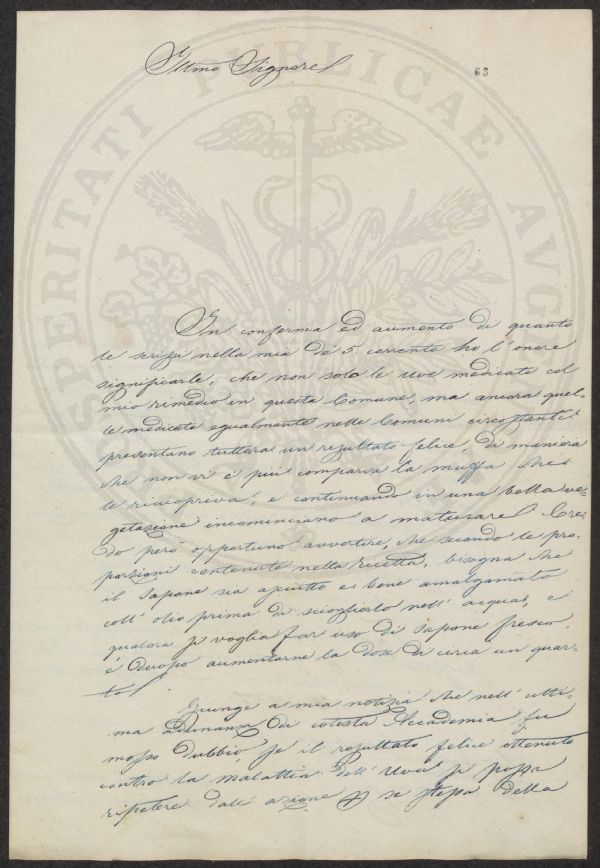 Illmo Signore
63
In conferma ed aumento di quanto
le scrissi nella mia de' 5 corrente ho l'onore
significarle, che non solo le uve medicate col
mio rimedio in questa Comune, ma ancora quel-
le medicate egualmente nelle Comuni circostanti
presentano tuttora un resultato felice, di maniera
che non vi è più comparsa la muffa che
le ricuopriva, e continuando in una bella ve-
getazione incominciano a maturare. Cre-
do però opportuno avvertire, che stando le pro-
porzioni contenute nella ricetta, bisogna che
il Sapone sia asciutto e bene amalgamato
coll'olio prima di scioglierlo nell'acqua, e
qualora si voglia far uso di sapone fresco
è d'uopo aumentarne la dose di circa un quar-
to
Giunge a mia notizia che nell'ulti-
ma Adunanza di cotesta Accademia fu
mosso dubbio se il resultato felice ottenuto
contro la malattia dell'Uva si possa
ripetere dall'azione p se stessa della